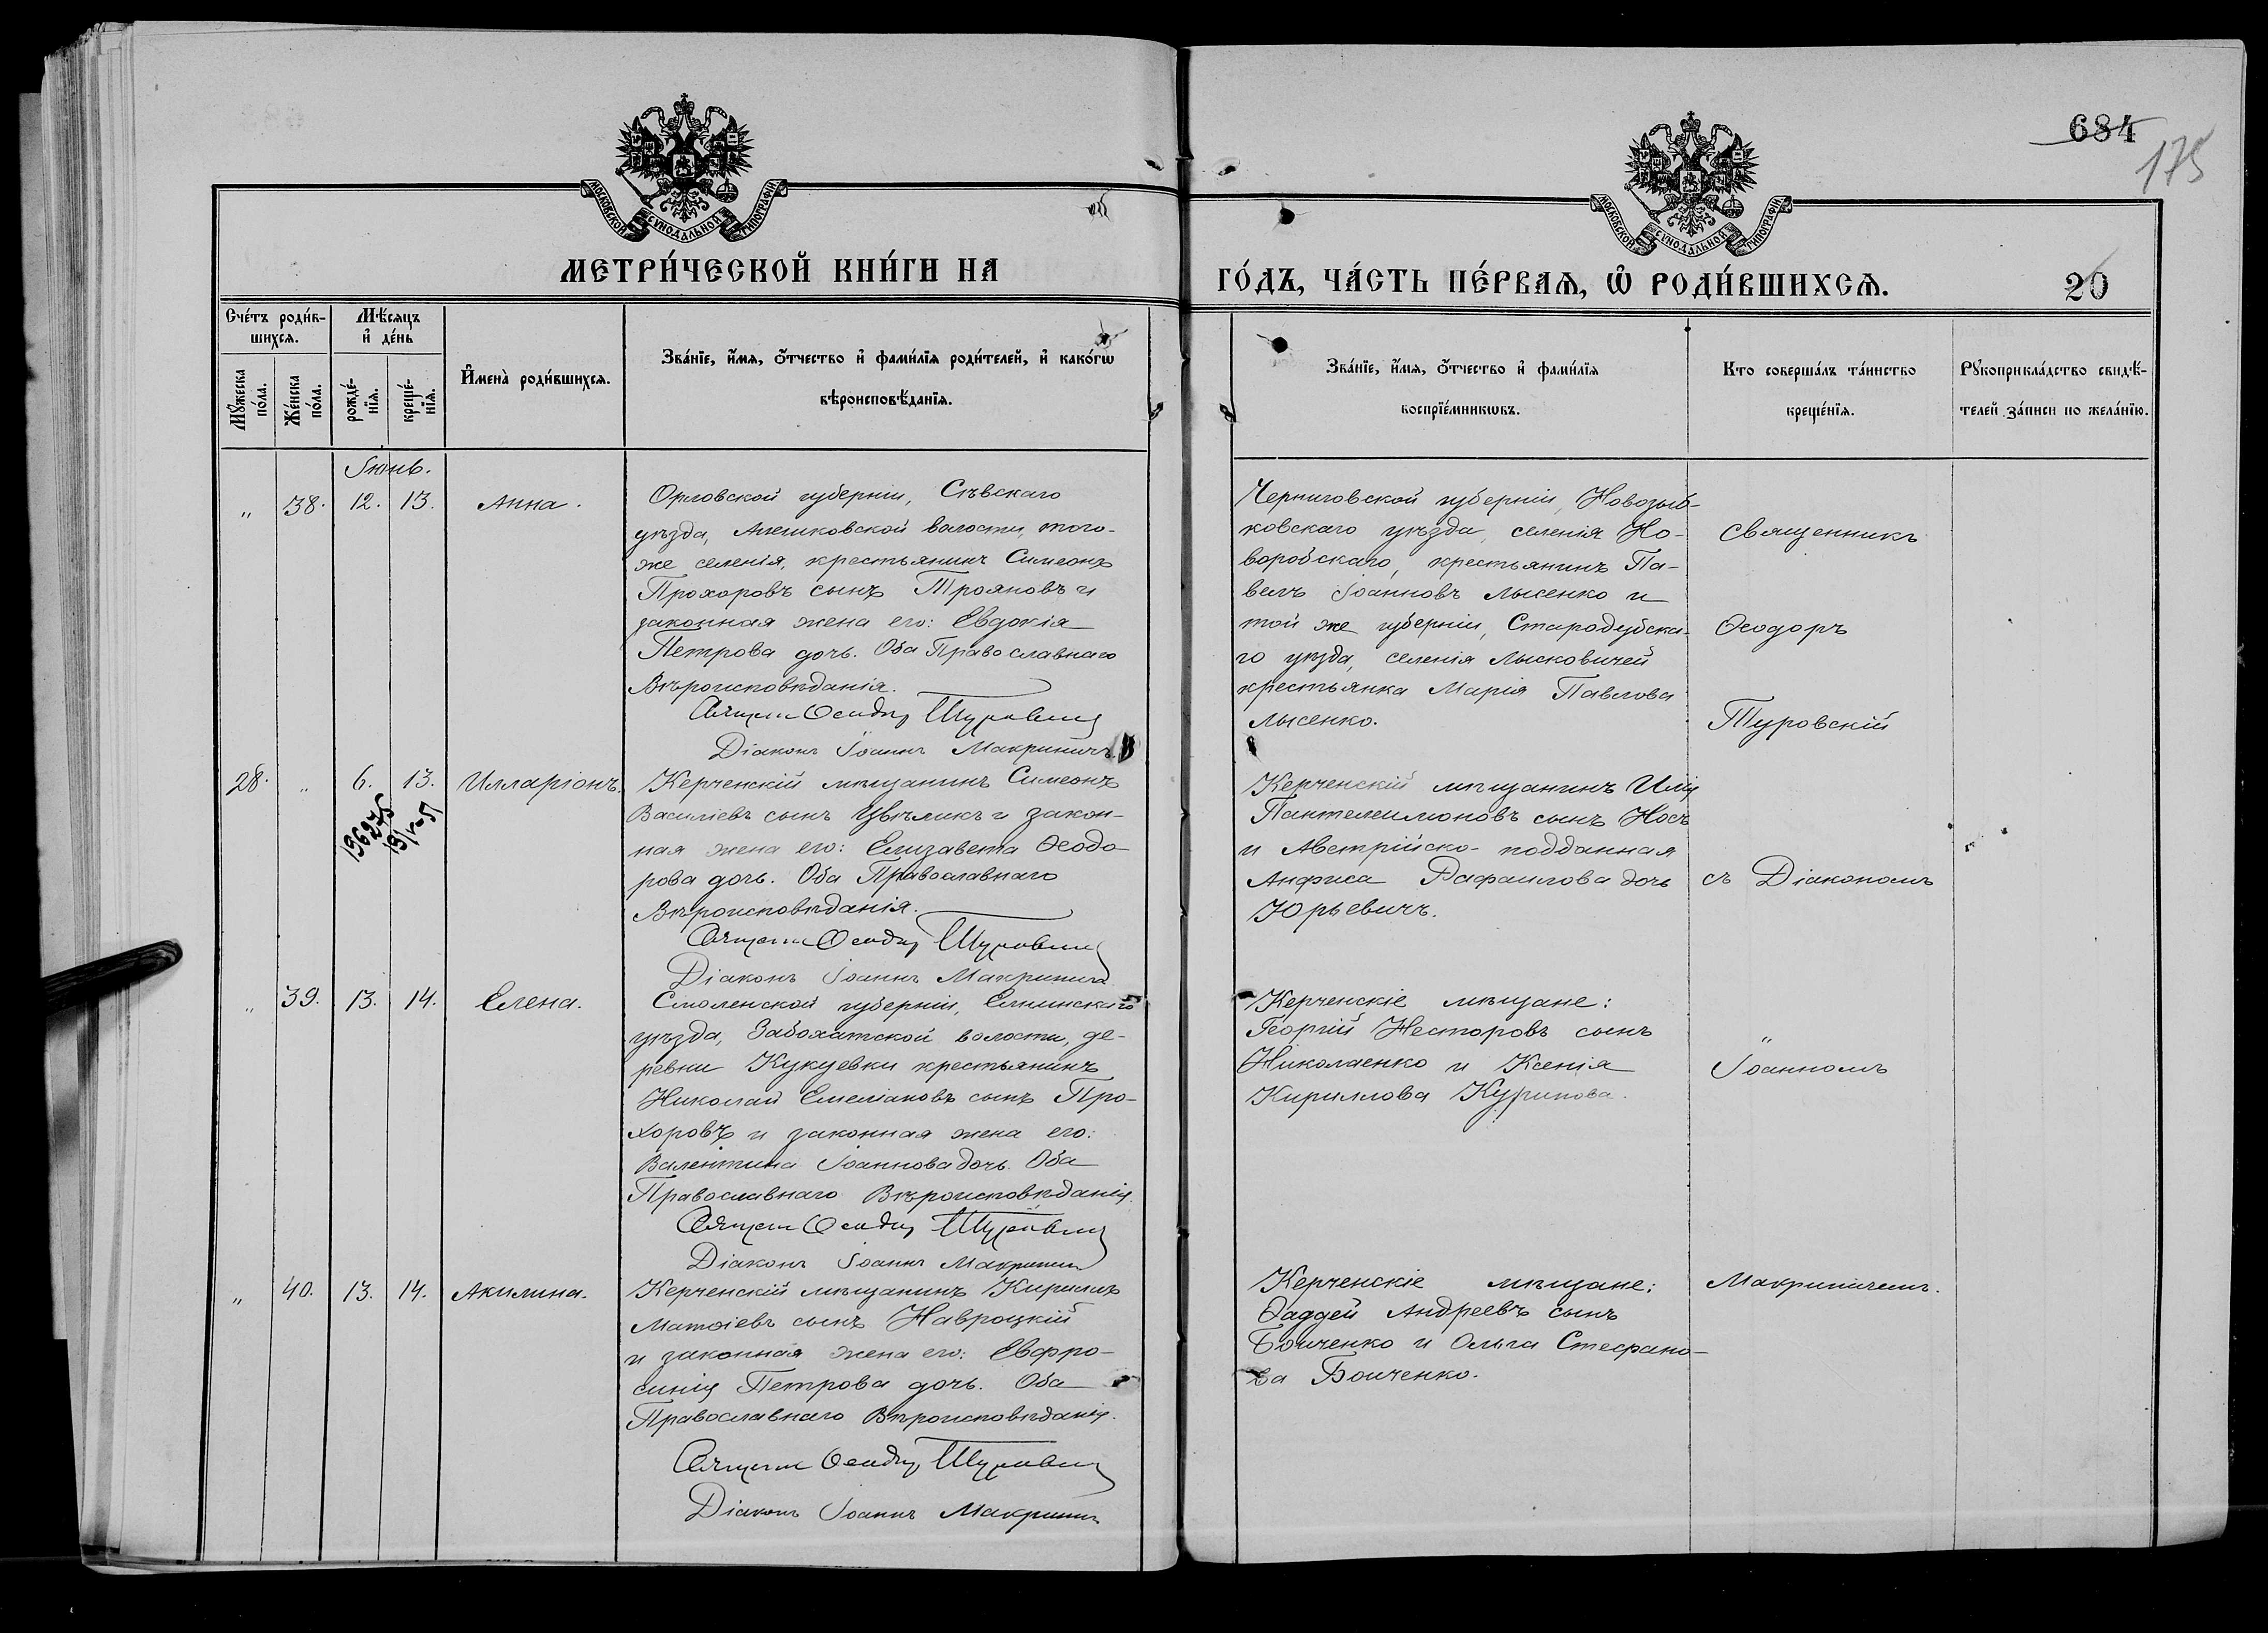 684
175
МОСКОВСКОЙ СѴНОДАЛЬНОЙ ТИПОГРАФІИ
МОСКОВСКОЙ СѴНОДАЛЬНОЙ ТИПОГРАФІИ
МЕТРИ́ЧЕСКОЙ КНИ́ГИ НА
ГО́ДЪ, ЧА́СТЬ ПЕ́РВАѦ, Ѡ РОДИ́ВШИХСѦ.
20
Сче́тъ роди́в-
шихсѧ.
Мꙋ́жеска
по́ла.
Же́нска
по́ла.
Мѣ́сѧцъ
и҆ де́нь
рожде́-
нїѧ.
креще́-
нїѧ.
И҆мена̀ роди́вшихсѧ.
Зва́нїе, и҆́мѧ, ѻ҆́тчество и҆ фами́лїѧ роди́телей, и҆ како́гѡ
вѣроисповѣ́данїѧ.
Зва́нїе, и҆́мѧ, ѻ҆́тчество и҆ фами́лїѧ
воспрїе́мникѡвъ.
Кто соверша́лъ та́инство
креще́нїѧ.
Рꙋкоприкла́дство свидѣ́-
телей за́писи по жела́нїю.
Іюнь.
„ 38. 12. 13. Анна.
Орловской губерніи, Сѣвскаго
уѣзда, Алешковской волости, того-
же селенія, крестьянинъ Симеонъ
Прохоровъ сынъ Трояновъ и
законная жена его: Евдокія
Петрова дочь. Оба Православнаго
Вѣроисповѣданія.
Священ Ѳеодоръ Туровскій
Діаконъ Іоаннъ Макриничъ
Черниговской губерніи, Новозыб-
ковскаго уѣзда, селенія Но-
воробскаго, крестьянинъ Па-
велъ Іоанновъ Лысенко и
той же губерніи, Стародубска-
го уѣзда, селенія Лысковичей
крестьянка Марія Павлова
Лысенко.
Священникъ
Ѳеодоръ
Туровскій
28. „ 6. 13. Илларіонъ.
196275
Керченскій мѣщанинъ Симеонъ
Василіевъ сынъ Цвѣликъ и закон-
ная жена его: Елизавета Ѳеодо-
рова дочь. Оба Православнаго
Вѣроисповѣданія.
Священ Ѳеодоръ Туровскій
Діаконъ Іоаннъ Макриничъ
Керченскій мѣщанинъ Илія
Пантелеимоновъ сынъ Носъ
и Австрійско-подданная
Анфиса Рафаилова дочь
Юрьевичъ.
съ Діакономъ
„ 39. 13. 14. Елена.
Смоленской губерніи, Ельнинскаго
уѣзда, Забохатской волости, де-
ревни Кукуевки крестьянинъ
Николай Емеліановъ сынъ Про-
хоровъ и законная жена его:
Валентина Іоаннова дочь. Оба
Православнаго Вѣроисповѣданія.
Священ Ѳеодоръ Туровскій
Діаконъ Іоаннъ Макриничъ
Керченскіе мѣщане:
Георгій Несторовъ сынъ
Николаенко и Ксенія
Кириллова Курикова.
„
Іоанномъ
„ 40. 13. 14. Акилина.
Керченскій мѣщанинъ Кириллъ
Матѳіевъ сынъ Навроцкій
и законная жена его: Евфро-
синія Петрова дочь. Оба
Православнаго Вѣроисповѣданія.
Священ Ѳеодоръ Туровскій
Діаконъ Іоаннъ Макриничъ
Керченскіе мѣщане:
Ѳаддей Андреевъ сынъ
Бойченко и Ольга Стефано-
ва Бойченко.
Макриничемъ.